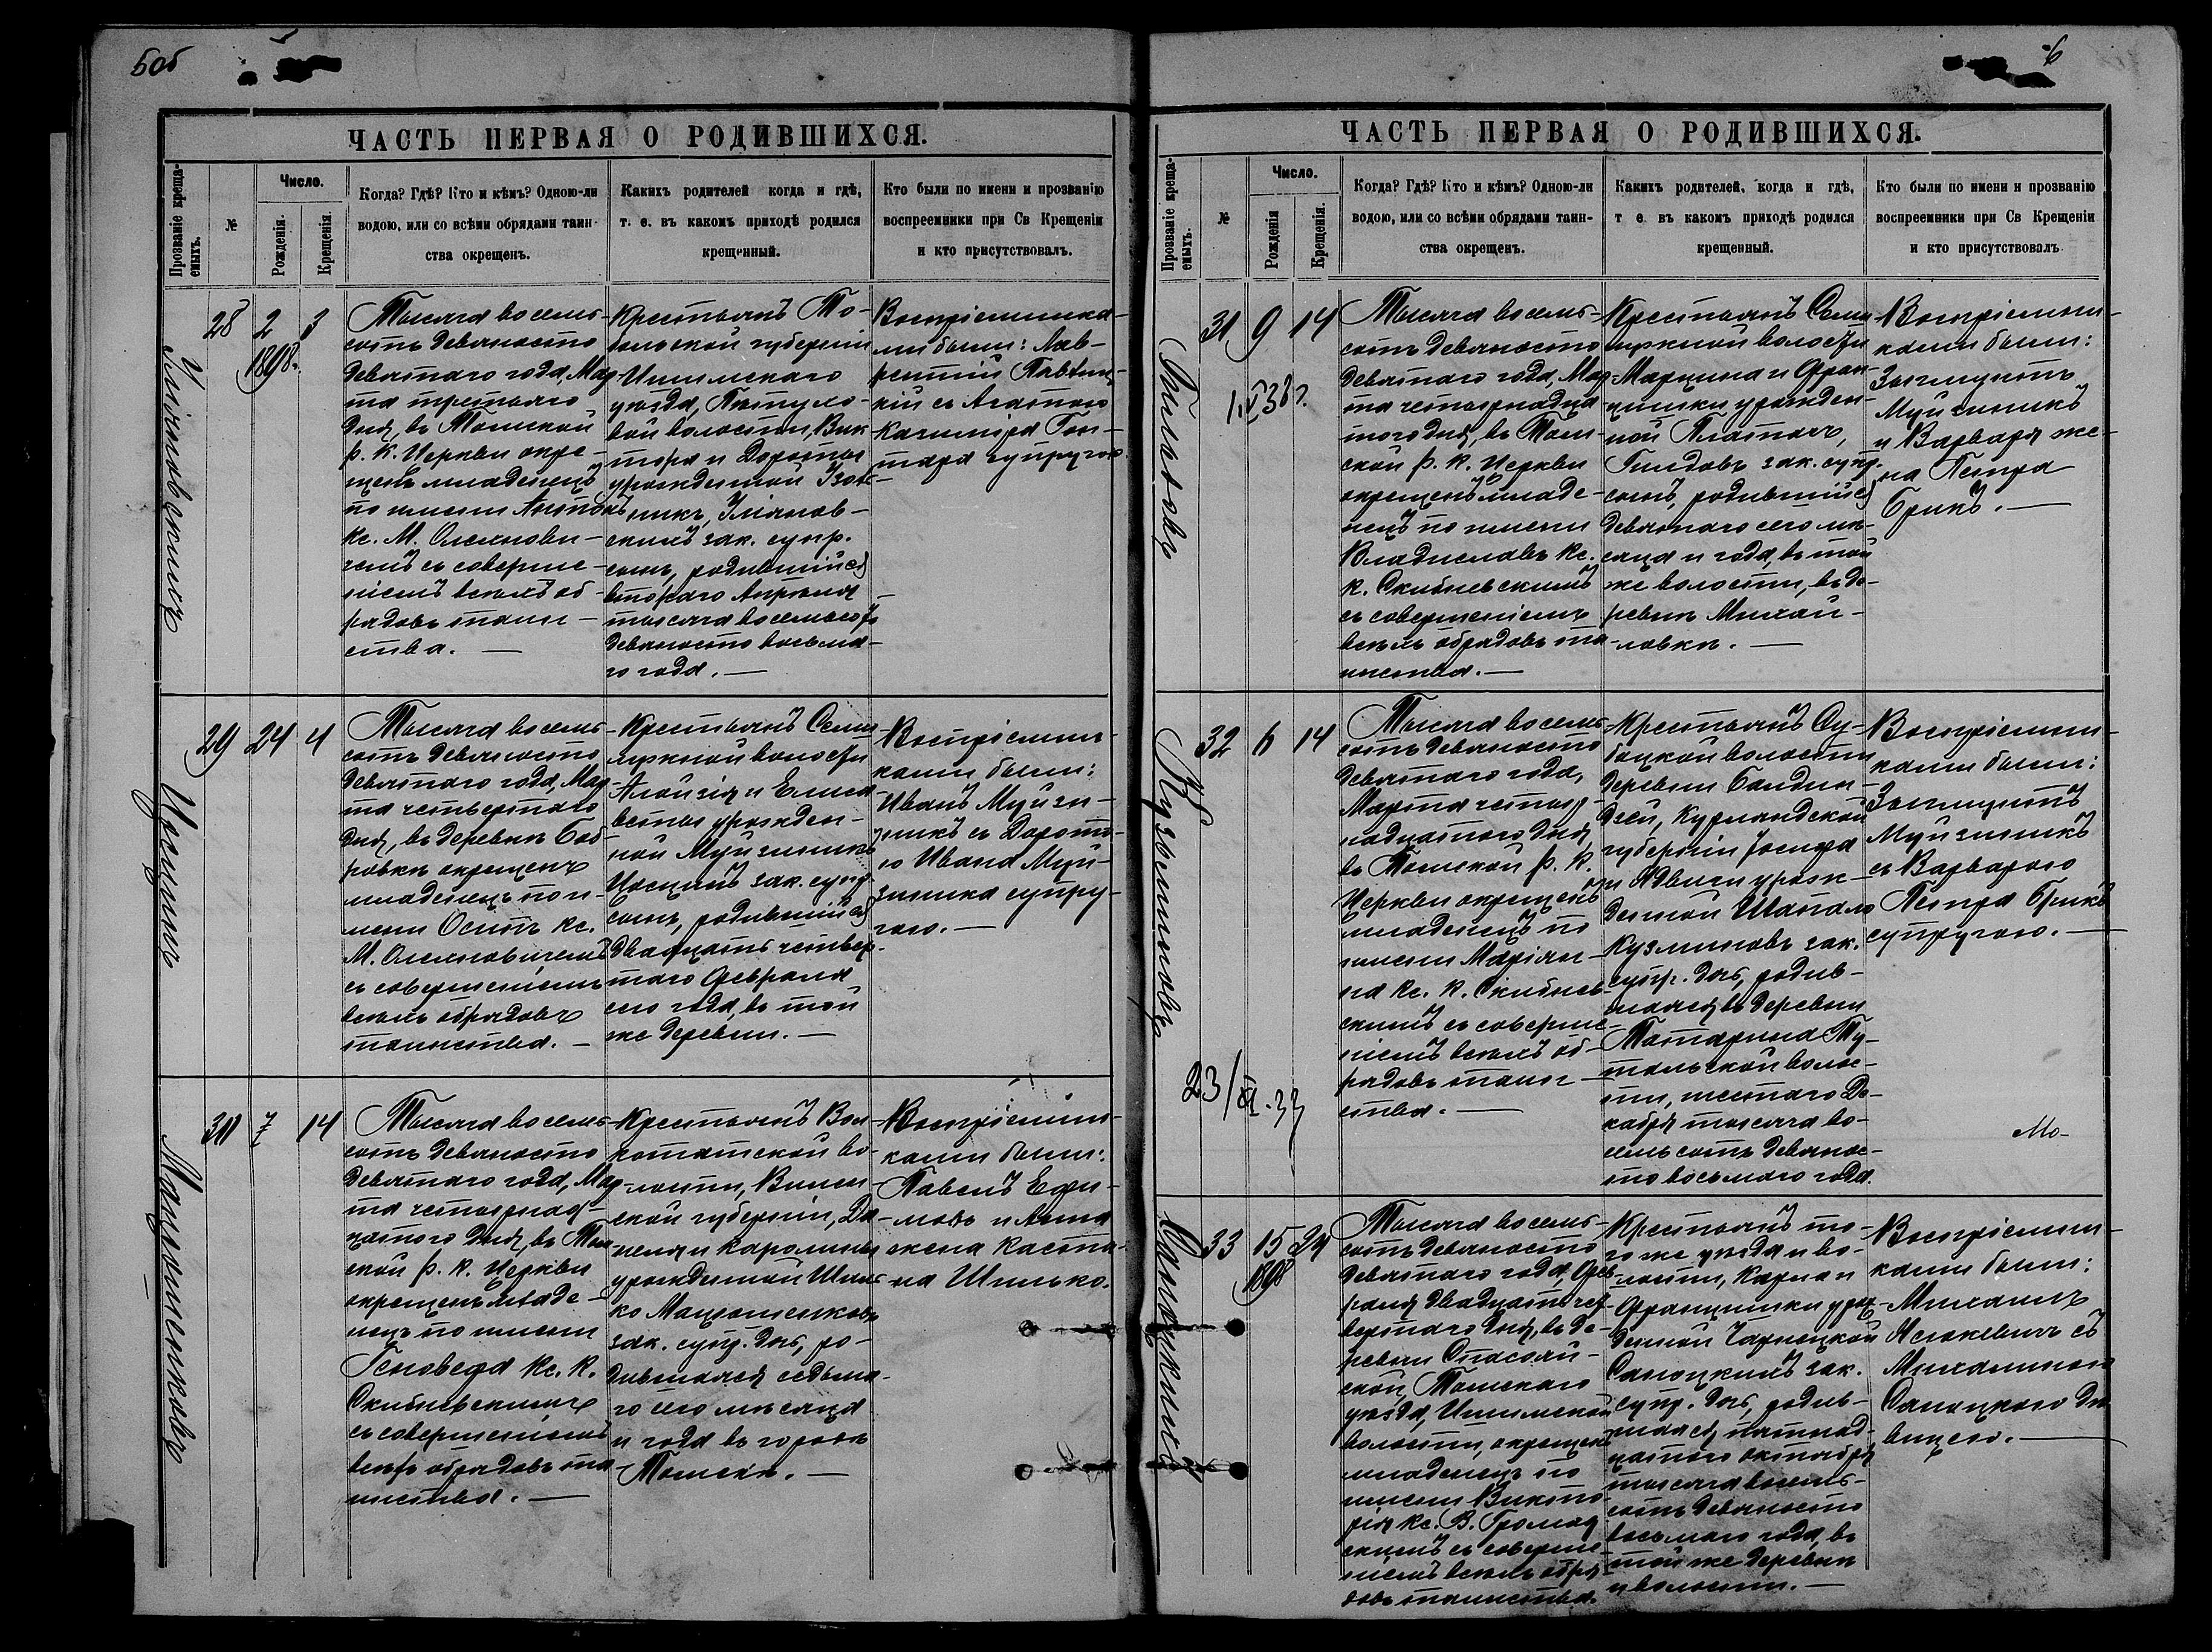 6об
ЧАСТЬ ПЕРВАЯ О РОДИВШИХСЯ.
Прозваніе креща-
емыхъ.
№
Число.
Рожденія.
Крещенія.
Когда? Гдѣ? Кто и кѣмъ? Одною-ли
водою, или со всѣми обрядами таин-
ства окрещенъ.
Какихъ родителей когда и гдѣ,
т. е. въ какомъ приходѣ родился
крещенный.
Кто были по имени и прозванію
воспреемники при Св Крещеніи
и кто присутствовалъ.
28 2 3
1898.
Тысяча восемь-
сотъ девяносто
девятаго года, Мар-
та третьяго
дня, въ Томской
р. к. Церкви окре-
щенъ младенецъ
по имени Антонъ
кс. М. Олехнови-
чемъ съ соверше-
ніемъ всѣхъ об-
рядовъ таин-
ства.
Крестьянъ То-
больской губерніи
Ишимскаго
уѣзда,
волости, Вик-
тора и Доротеи
урожденной
зак. супр.
сынъ, родившійся
втораго Апрѣля
тысяча восемьсотъ
девяносто восьма-
го года.
Воспріемника-
ми были: Лав-
рентій
кій съ Агатою
Казимира
супругою.
29 24 4
Тысяча восемь-
сотъ девяносто
девятаго года, Мар-
та четвертаго
дня, въ деревнѣ Боб-
ровкѣ окрещенъ
младенецъ по и-
мени Осипъ кс.
М. Олехновичемъ
съ совершеніемъ
всѣхъ обрядовъ
таинства.
Крестьянъ Семи-
лужной волости
Алойзія и Елиса-
веты урожден-
ной Муйжникъ
зак. супр.
сынъ, родившійся
двадцать четвер-
таго Февраля
сего года, въ той
же деревни.
Воспріемни-
ками были:
Иванъ Муйж-
никъ съ Дорото-
ю Ивана Муй-
жника супру-
гою.
30 7 14
Мацюшенковъ
Тысяча восемь-
сотъ девяносто
девятаго года, Мар-
та четырнад-
цатого дня, въ Том-
ской р. к. Церкви
окрещенъ младе-
нецъ по имени
Геновефа кс. К.
Скибневскимъ
съ совершеніемъ
всѣхъ обрядовъ та-
инства.
Крестьянъ
во-
лости, Вилен-
ской губерніи, Да-
ніеля и Каролины
урожденной Шиль-
ко Мацюшенковъ
зак. супр. дочь, ро-
дившаяся седьма-
го сего мѣсяца
и года въ городѣ
Томскѣ.
Воспріемни-
ками были:
Павелъ Ефи-
мовъ и Анна
жена Каста-
на Шилько.
6
ЧАСТЬ ПЕРВАЯ О РОДИВШИХСЯ.
Прозваніе креща-
емыхъ.
№
Число.
Рожденія
Крещенія.
Когда? Гдѣ? Кто и кѣмъ? Одною-ли
водою, или со всѣми обрядами таин-
ства окрещенъ.
Какихъ родителей, когда и гдѣ,
т е. въ какомъ приходѣ родился
крещенный.
Кто были по имени и прозванію
воспреемники при Св Крещеніи
и кто присутствовалъ
31 9 14
Тысяча восемь-
сотъ девяносто
девятаго года, Мар-
та четырнадца-
таго дня, въ Том-
ской р. к. Церкви
окрещенъ младе-
нецъ по имени
Владиславъ кс.
К. Скибневскимъ
съ совершеніемъ
всѣхъ обрядовъ та-
инства.
Крестьянъ Семи-
лужной волости
Марцина и Фран-
цишки урожден-
ной
зак. супр.
сынъ, родившійся
девятаго сего мѣ-
сяца и года, въ той
же волости, въ де-
ревнѣ Михай-
ловкѣ.
Воспріемни-
ками были:
Зыгмунтъ
Муйжникъ
и Варвара же-
на Петра
Брикъ.
32 6 14
Кузьминовъ
23/XI.33
Тысяча восемь-
сотъ девяносто
девятаго года,
Марта четыр-
надцатого дня,
въ Томской р. к.
Церкви окрещенъ
младенецъ по
имени Маріан-
на кс. К. Скибнев-
скимъ съ соверше-
ніемъ всѣхъ об-
рядовъ таин-
ства.
Крестьянъ Су-
бацкой волости
деревни
Курляндской
губерніи Іосифа
и Ядвиги урож-
денной
Кузминовъ зак.
супр. дочь, родив-
шаяся въ деревни
Татарина Ту-
тальской волос-
ти, шестаго Де-
кабря тысяча во-
семьсотъ девянос-
то восьмаго года.
Воспріемни-
ками были:
Зыгмунтъ
Муйжникъ
съ Варварою
Петра Брикъ
супругою.
33 15 24
1898
Тысяча восемь-
сотъ девяносто
девятаго года, Фев-
раля двадцать чет-
вертаго дня, въ де-
ревни
Томскаго
уѣзда, Ишимской
волости, окрещенъ
младенецъ по
имени Викто-
рія кс. В. Громад-
скимъ съ соверше-
ніемъ всѣхъ обря-
довъ таинства.
Крестьянъ то-
го же уѣзда и во-
лости, Карла и
Францишки урож-
денной Чарнецкой
зак.
супр. дочь, родив-
шаяся пятнад-
цатого октября
тысяча восемь-
сотъ девяносто
восьмаго года, въ
той же деревни
и волости.
Воспріемни-
ками были:
Михаилъ
съ
Михалиною
де-
вицею.